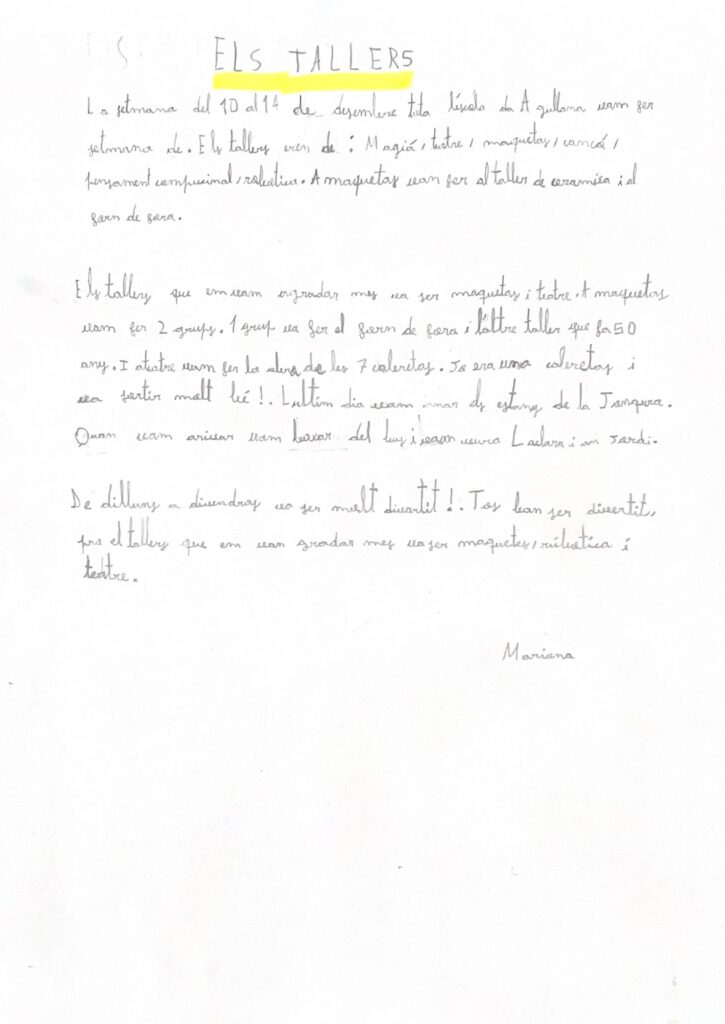 ELS TALLERS
La setmana del 10 al 14 de desembre tota l'escola da Agullana vam fer
setmana de. Els tallers eren de : Magiá, teatre, maquetas, cancó,
pensament compucinal, robutica. A maquetas van fer el taller de ceramica i al
forn de fora.
Els tallers que em vam agradar mes va ser maquetas i teatre. A maquetas
vam fer 2 grups. 1 grup va fer el forn de fora i l'altre taller que fa 50
any. I ateatre vam fer la obra de les 7 cabretas. Jo era una cabretas i
va sortir molt bé !. L'ultim dia vam anar als estany de la Jonquera.
Quan vam arivar vam baxar del bus i vam veura La clara i an Jordi.
De dilluns a divendras va ser molt divartit !. Tos van ser divertit,
pro el tallers que em van gradar mes va ser maquetes, rubutica i
teatre.
Mariana